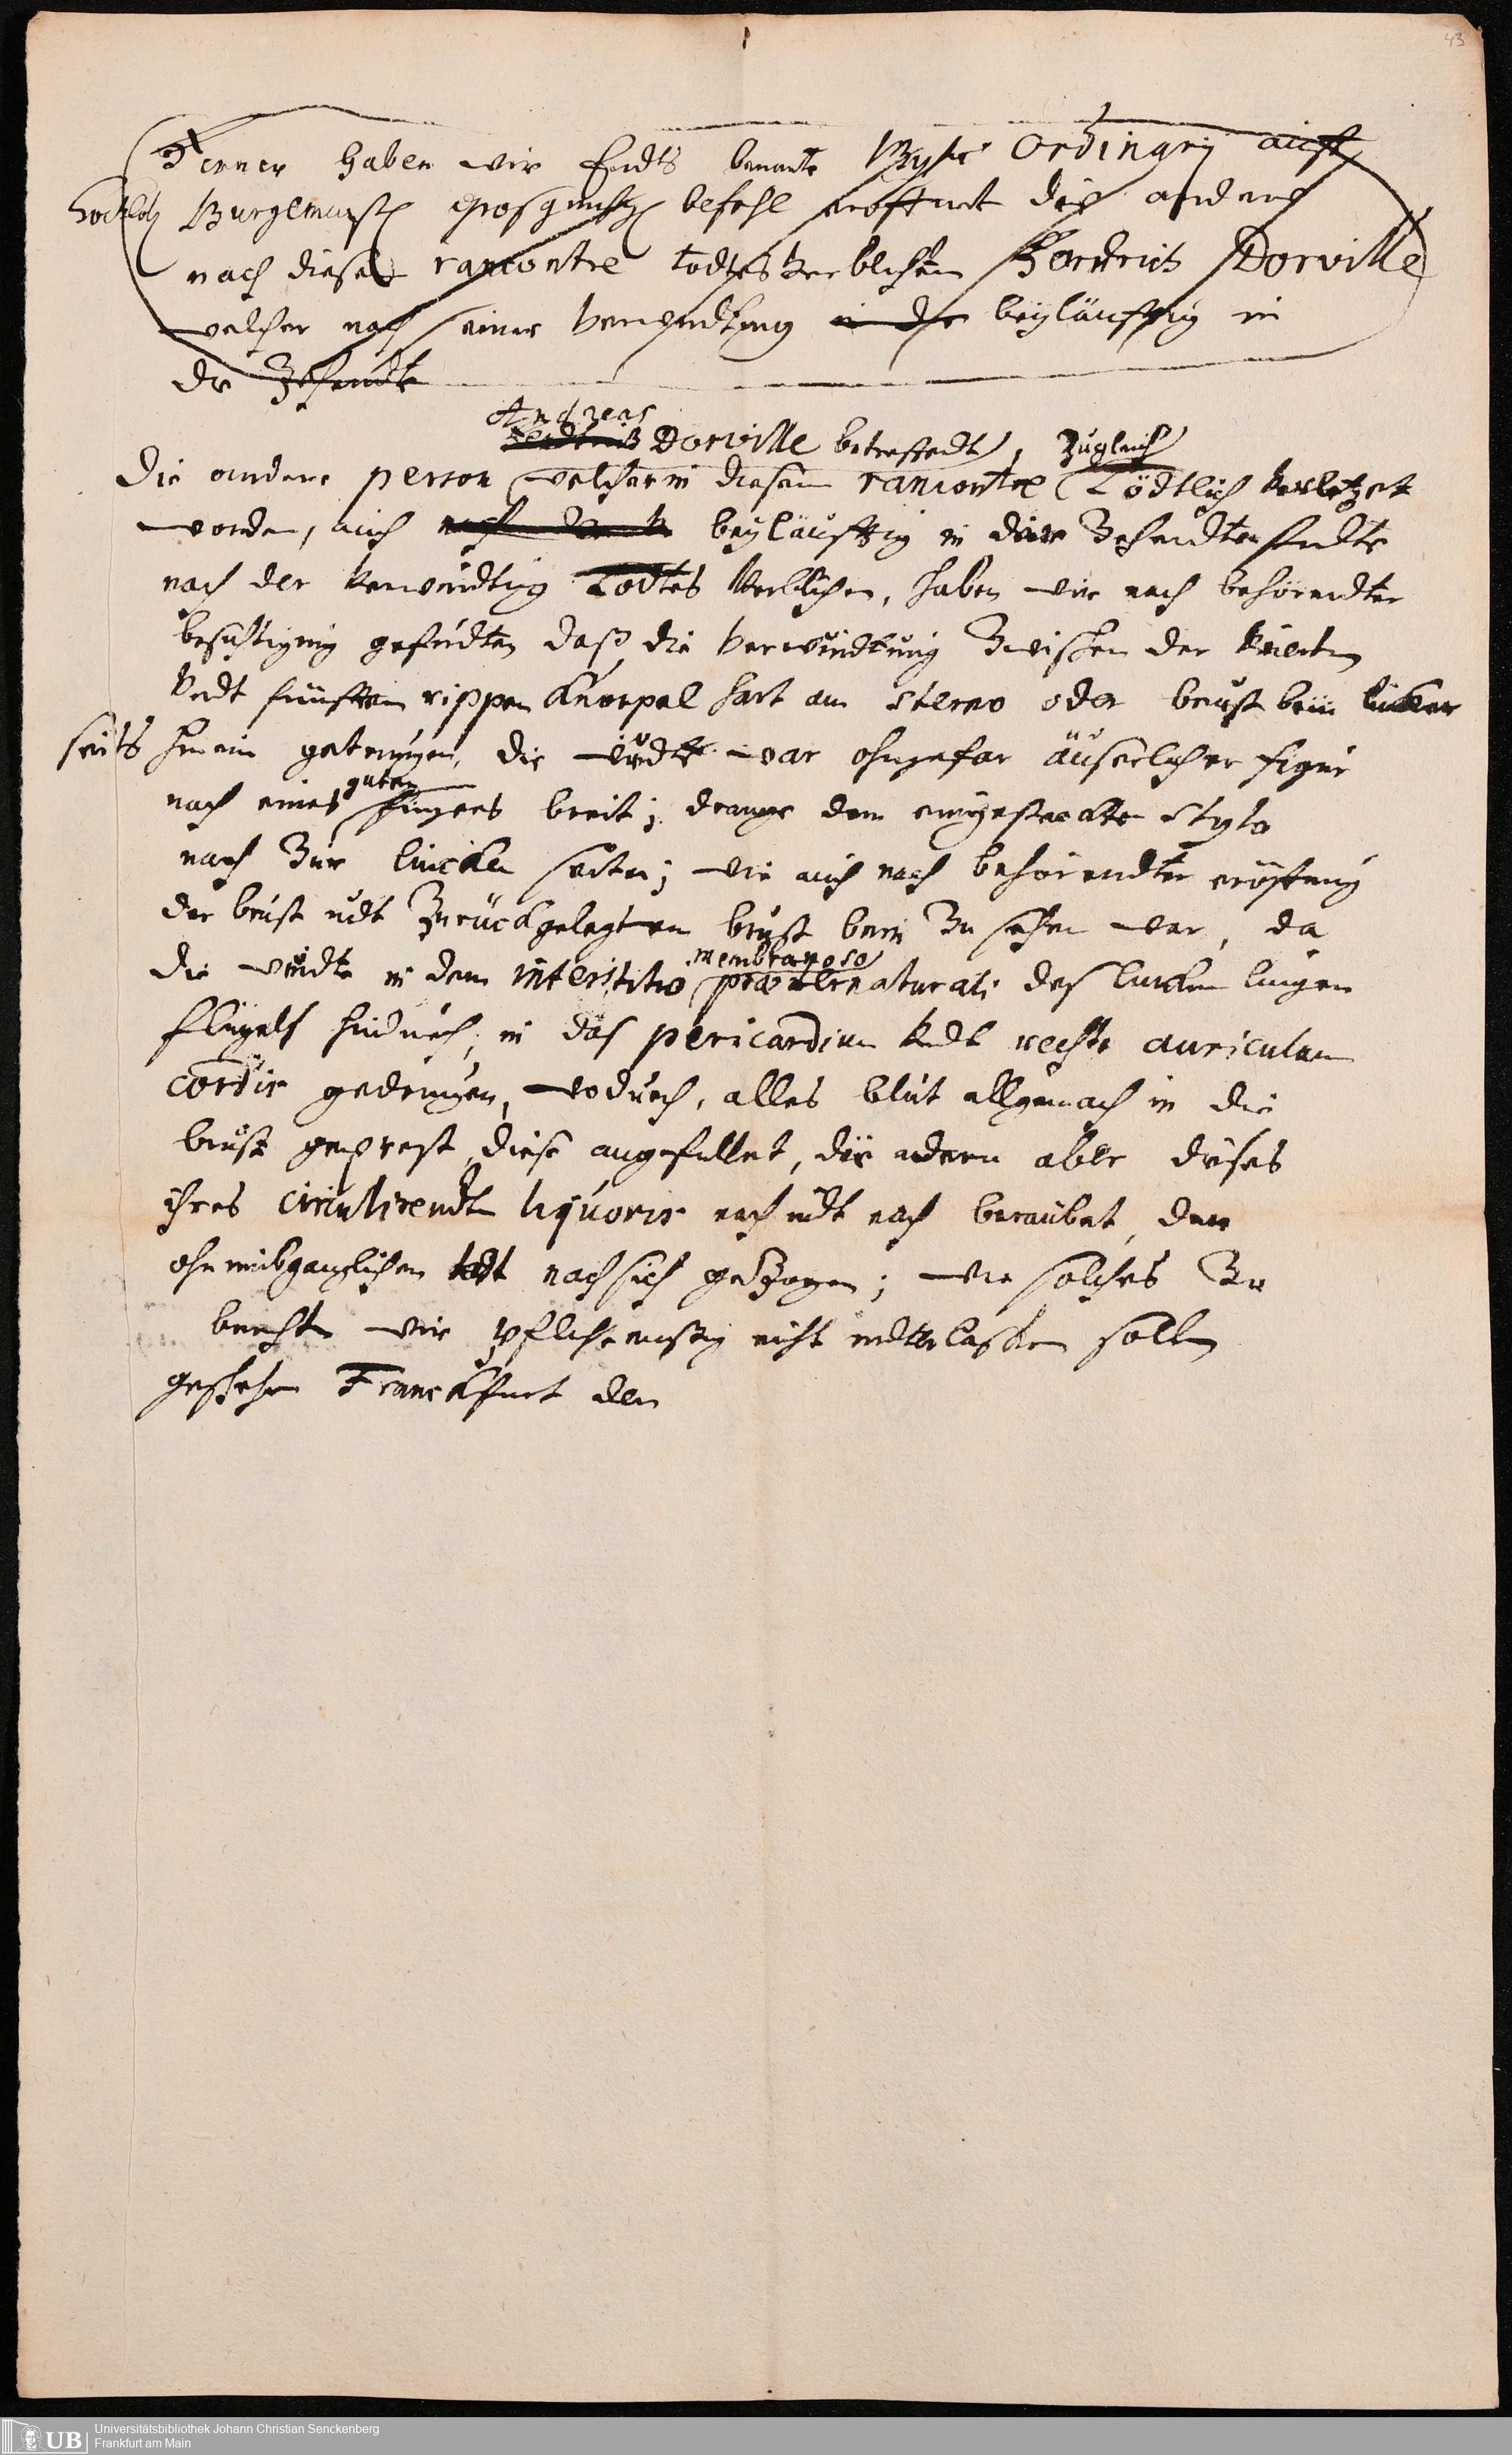 43
Ferner haben wir Endts benante Physici Ordinarij auch
Burgemeist befehl eröffnet die andere
nach diesem rancontre todtes Verblichen Dorville
welcher nach seiner Verwundtung in der beyläufftig in
der
Andreas
Dorville betreffendt, zugleich
Die andere person welcher in diesem rancontre Tödtlich Verletzet
worden, auch beyläufftig in der
nach der Verwundtung Todtes Verblichen, haben wir nach behörendter
besichtigung gefundten daß die Verwundtung Zwischen der Vierten
Vndt fünfften rippen Knorpel hart am sterno oder brust bein lincker
seits hinein getrungen, die wundte war ohngefar äuserlicher figur
guten
nach eines fingers breit; drange dem eingesteckten stylo
nach Zur lincken seiten; wie auch nach behörendter eröffnung
der brust undt Zurückgelegten brust bein Zu sehen war, da
membranoso
die wundte in dem interstitio praeternaturali des lincken lungen
flügels hindurch, in das pericardium Vndt rechte auriculam
cordis gedrungen, wodurch, alles blut allgemach in die
brust geprest, diese angefüllet, die adern aber dieses
ihres circulirendten liquoris nach undt nach beraubet, den
ohnumbgänglichen todt nach sich geZogen; wie solches Zu
berichten wir pflichtmäßig nicht undterlassen sollen
geschehen Franckfurt den
UB
Universitätsbibliothek Johann Christian Senckenberg
Frankfurt am Main